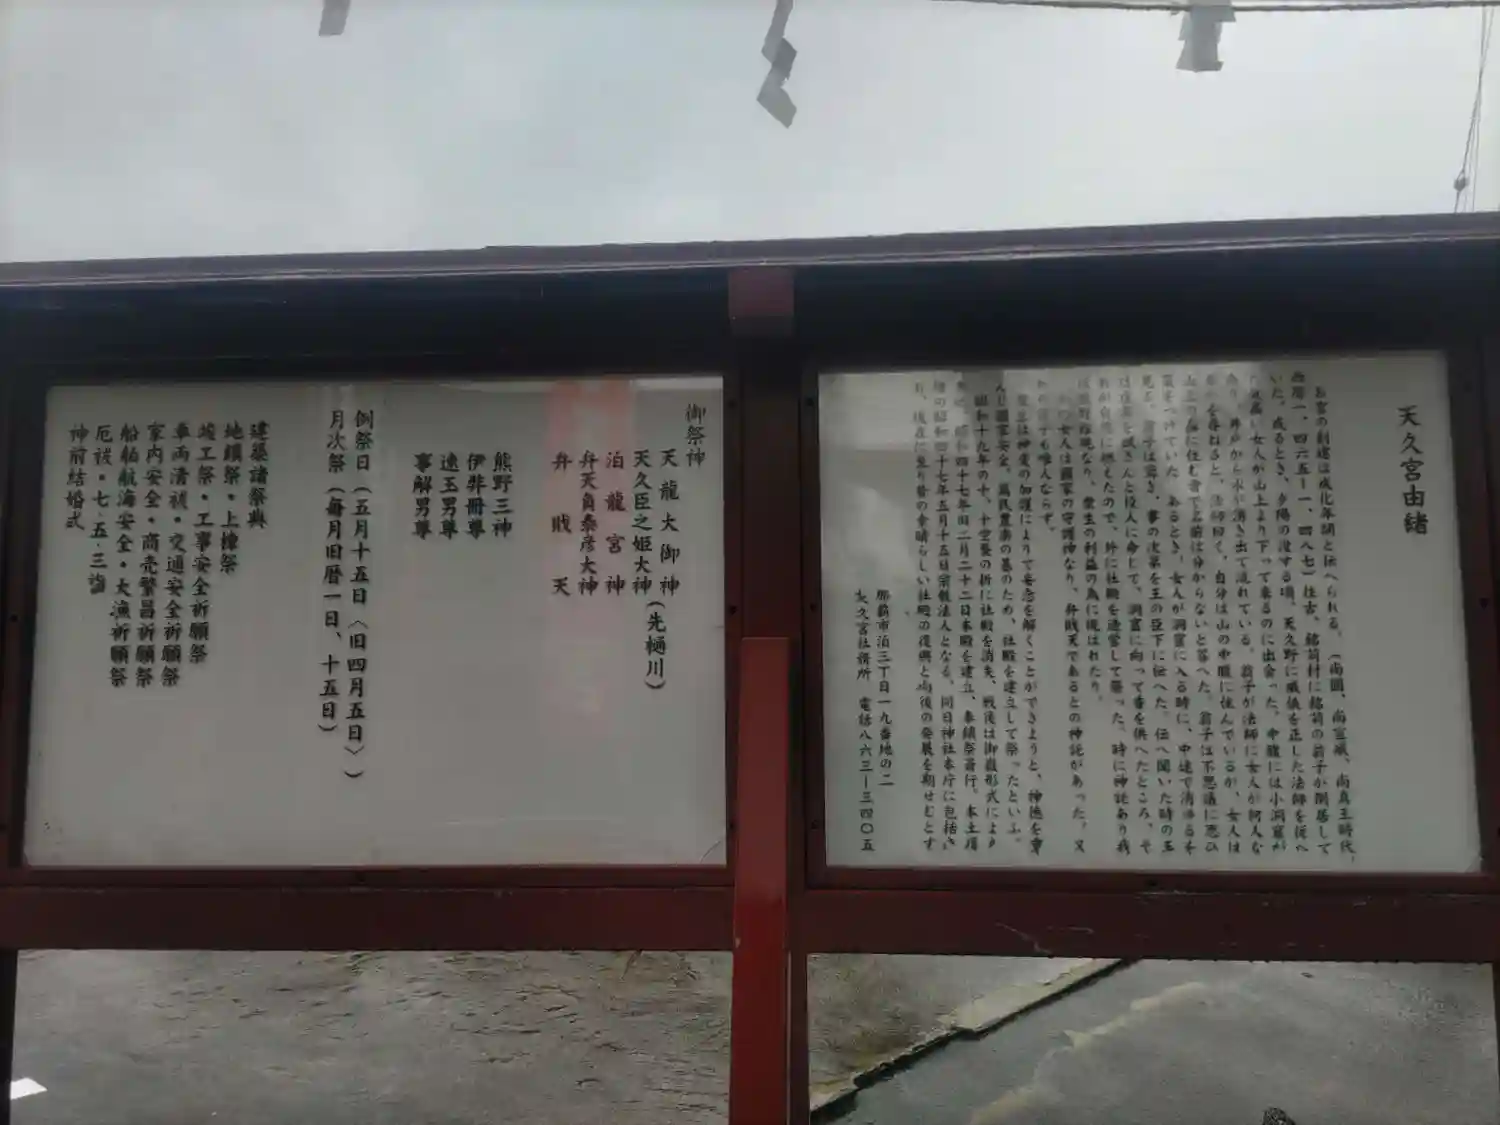 天久宮由緒
お宮の創建は成化年間と伝へられる。(尚圓、尚宣威、尚真王時代、
西暦一、四六五ー一、四八七)往古、銘苅村に銘苅の翁子が閑居して
いた。或るとき、夕陽の没する頃、天久野に威儀を正した法師を従へ
気高い女人が山上より下って来るのに出会った。中腹には小洞窟が
あり、井戸から水が湧き出て流れている。翁子が法師に女人が何人な
を尋ねると、法師曰く、自分は山の中腹に住んでいるが、女人は
山上の森に住む者で名前は分からないと答へた。翁子は不思議に思ひ
気をつけていた。あるとき、女人が洞窟に入る時に、中途で消ゆるを
見る。翁子は驚き、事の次第を王の臣下に伝へた。伝へ聞いた時の王
は虚実を試さんと役人に命じて、洞窟に向って香を供へたところ、そ
れが自然に燃えたので、外に社殿を造営して祭った。時に神託あり我
は熊野権現なり、衆生の利益の為に現はれたり。
女人は国家の守護神なり、弁財天であるとの神託があった。又
の法師も唯人ならず。
衆生は神慮の加護によりて妄念を解くことができようと、神徳を尊
んじ国家安全、萬民豊楽の基のため、社殿を建立して祭ったといふ。
昭和十九年の十、十空襲の折に社殿を消失、戦後は御嶽形式により
昭和四十七年旧二月二十二日本殿を建立、奉鎮祭斎行。本土復
帰の昭和四十七年五月十五日宗教法人となる。同日神社本庁に包括さ
れ、現在に至り昔の素晴らしい社殿の復興と向後の発展を期せむとす
那覇市泊三丁目一九番地の二
天久宮社務所 電話八六三ー三四〇五
御祭神
天龍大御神
天久臣之姫大神(先樋川)
泊龍宮神
弁天負泰彦大神
弁財天
熊野三神
伊弉冊尊
速玉男尊
事解男尊
例祭日(五月十五日〈旧四月五日〉)
月次祭(毎月旧暦一日、十五日)
建築諸祭典
地鎮祭・上棟祭
竣工祭・工事安全祈願祭
車両清祓・交通安全祈願祭
家内安全・商売繁昌祈願祭
船舶航海安全・大漁祈願祭
厄祓・七・五・三詣
神前結婚式